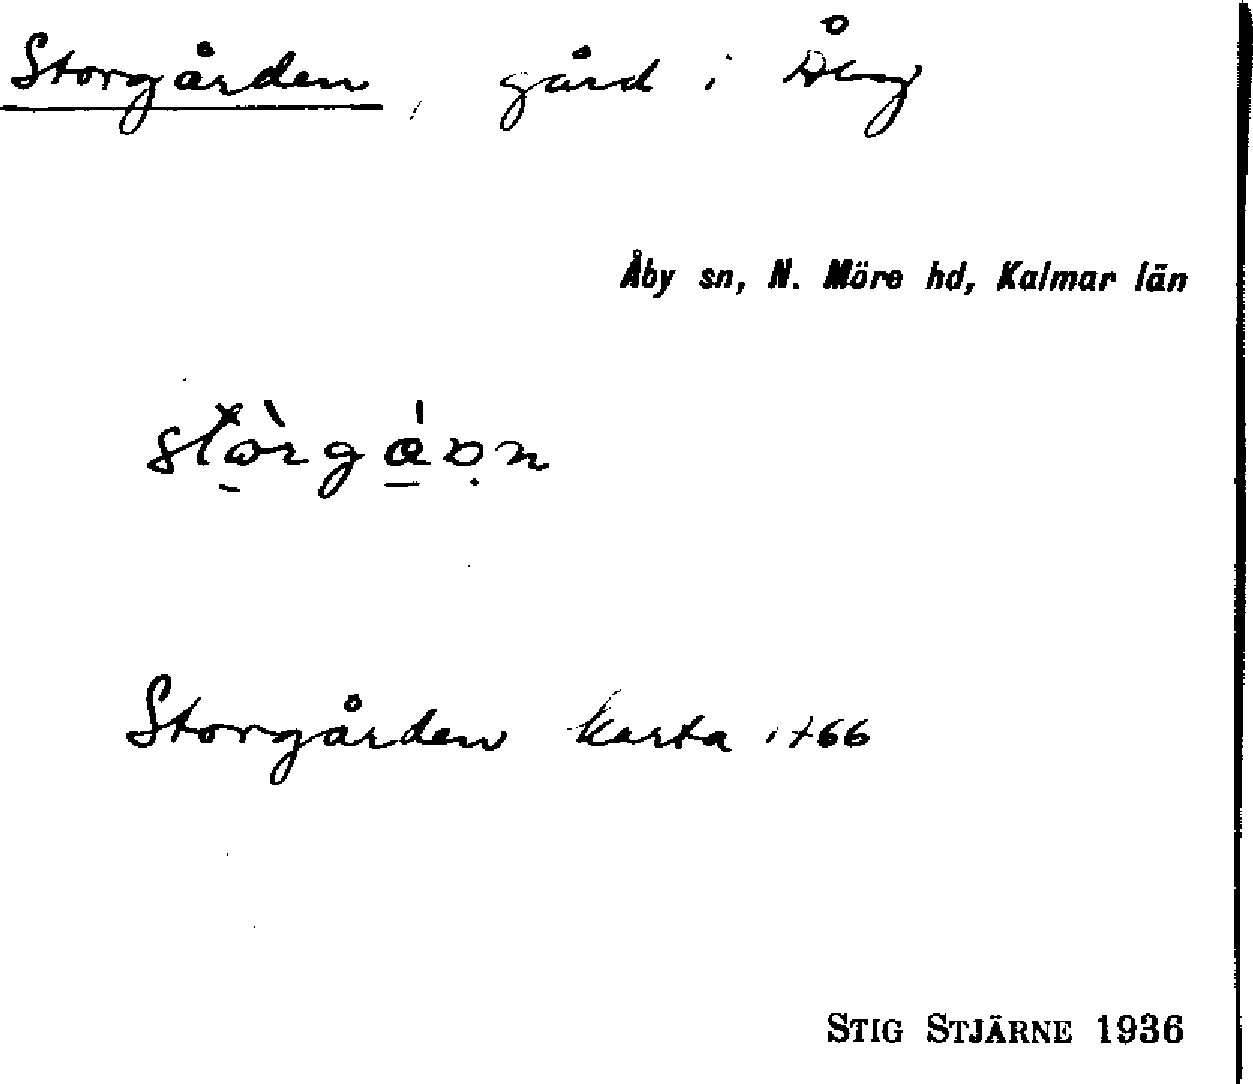 Storgården, gård i Åby
Åby sn, N. Möre hd, Kalmar län
Storgården karta 1766
STIG STJÄRNE 1936